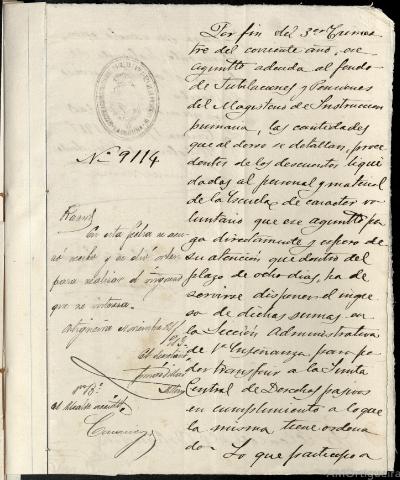 Por fin del 3er Trimes-
tre del corriente año, ese
aguntto adeuda al fondo
de Jubilaciones y Pensiones
del Magisterio de Instrucción
primaria, las cantidades
que al dorso se detallan, proce-
dentes de los descuentos liqui-
dados al personal y material
de la Escuela de carácter vo-
luntario que ese aguntto pa-
ga directamente y espero de
su atención que dentro del
plazo de ocho días, ha de
servirse disponer el ingre-
so de dichas sumas en
la Sección Administrativa
de 1ª Enseñanza para po-
der transferir a la Junta
Central de Derechos pasivos
en cumplimiento a lo que
la misma tiene ordena-
do. Lo que participo a
No 9114
En esta fecha se acu-
só recibo y se dió orden
para realizar el ingreso
que se interesa.
Ortigueira Noviembre
1913
El Secretario
Vº Bº
El Alcalde
AMOrtigueira